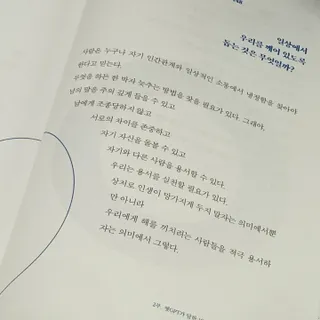 일상에서
우리를 깨어 있도록
돕는 것은 무엇일까?
사람은 누구나 자기 인간관계와 일상적인 소통에서 냉정함을 찾아야
한다고 믿는다.
무엇을 하든 한 박자 늦추는 방법을 찾을 필요가 있다. 그래야,
남의 말을 주의 깊게 들을 수 있고
남에게 조종당하지 않고
서로의 차이를 존중하고
자기 자신을 돌볼 수 있고
자기와 다른 사람을 용서할 수 있다.
우리는 용서를 실천할 필요가 있다.
상처로 인생이 망가지게 두지 말자는 의미에서뿐
만 아니라
우리에게 해를 끼치려는 사람들을 적극 용서하
자는 의미에서 그렇다.
1부. 챗GPT가 말한